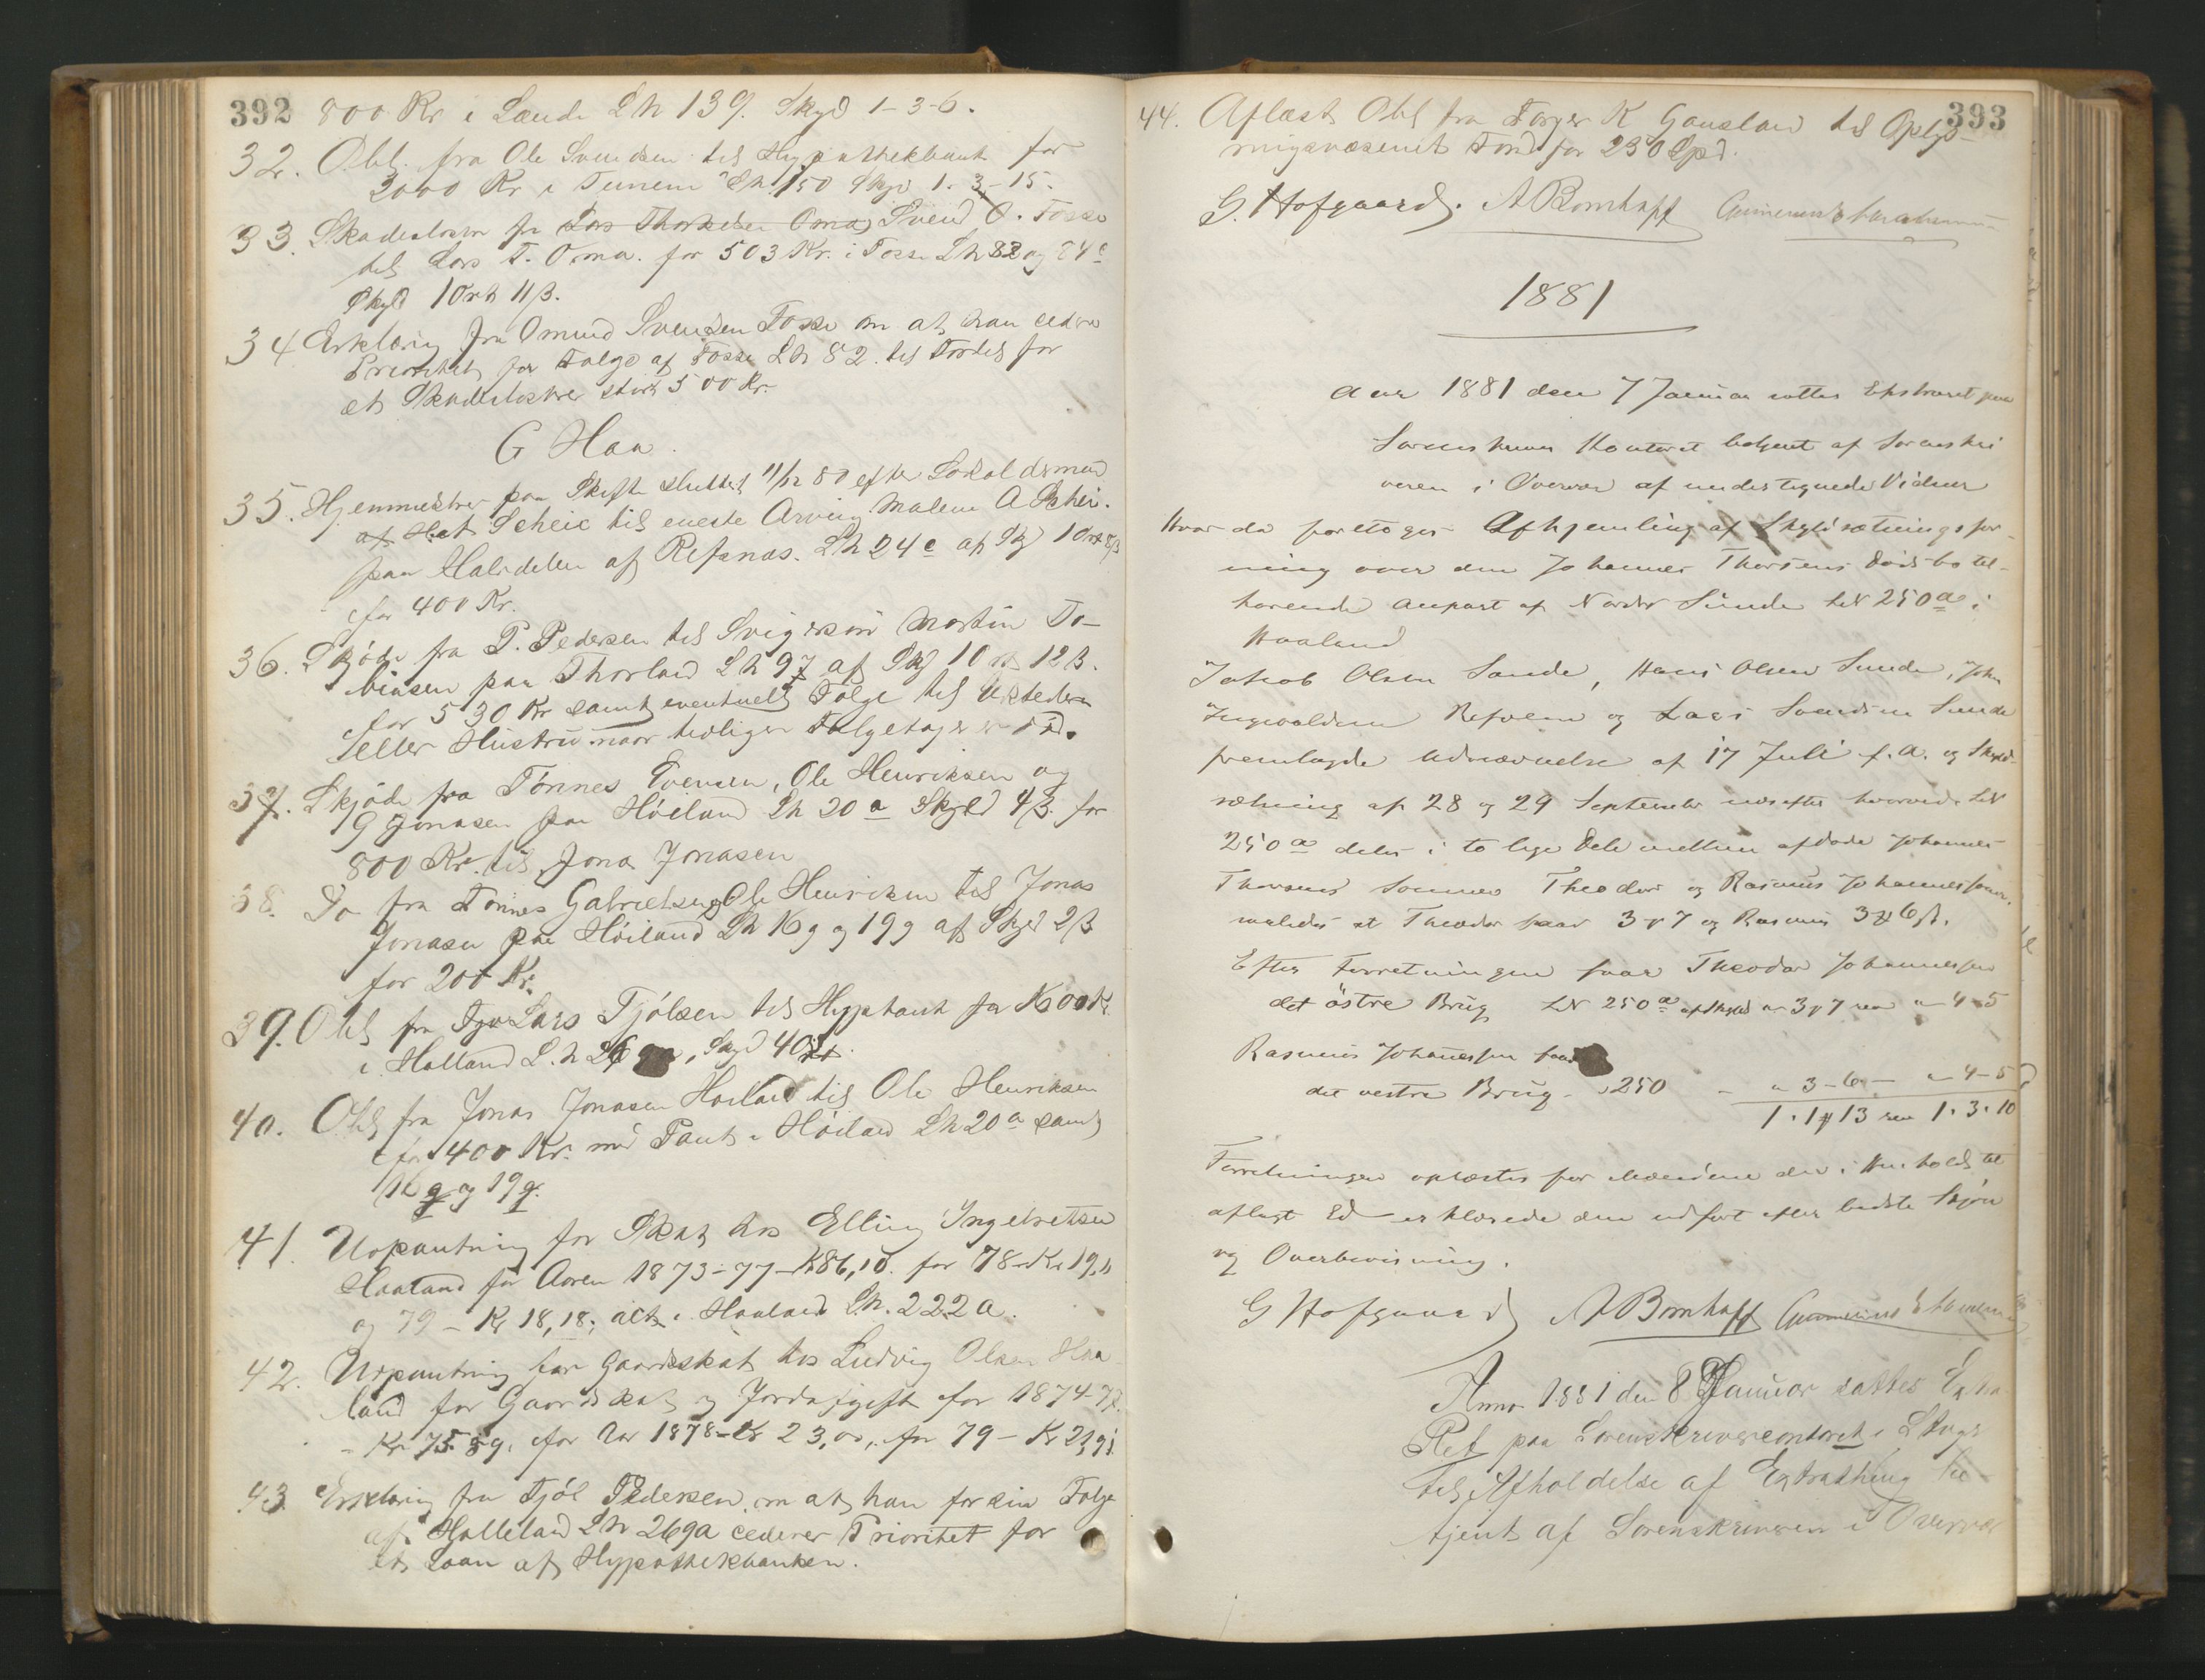 392
800 Kr i Lende Lh 139. Skyld 1-3-6.
32. Obl. fra Ole Svendsen til Hypothekbank for
2000 Kr i Tunem Lh. 150 Skyld 1. 3-15.
33. Skadesløsbr fr Lars Thorkelsen Oma, Svend O. Fosse
til Lars T. Oma. for 503 Kr. i Fosse Lh 82 og 84c
Skyld 1 Ort 11 ß.
34 Erklæring fra Omund Svendsen Fosse om at han cederer
Prioritet for Følge af Fosse Lh 82. til Fordel for
et Skadesløsbrev stort 500 Kr.
G Haa.
35. Hjemmelsbrev paa Skifte sluttet 11/12 80 efter
af Scheie til eneste Arving Malene A Scheie.
paa Halvdelen af Refsnæs. Lh 24c af Skyld 1 Ort
for 400 Kr.
36. Skjøde fra P. Pedersen til Svigersøn Martin To-
biasen paa Thorland Lh 97 af Skyld 1 Ort 12 ß.
for 530 Kr samt eventuelt Følge til Udstederen
eller Hustru naar tidligere Følgetager er død.
37. Skjøde fra Tønnes Evensen, Ole Henriksen og
G Jonasen paa Høiland Lh 20a Skyld 4 ß. for
800 Kr. til Jonas Jonasen
38. Do fra Tønnes Gabrielsen og Ole Henriksen til Jonas
Jonasen paa Høiland Lh 16g og 19g af Skyld 2 ß
for 200 Kr.
39. Obl fra Lars Tjølsen til Hypbank for 1600 Kr.
i Halland L. h 26, Skyld 4 Ort.
40. Obl fra Jonas Jonasen Høiland til Ole Henriksen
for 400 Kr. med Pant i Høiland Lh 20a samt
16g og 19g.
41. Udpantning for Skat hos Elling Ingebretsen
Haaland for Aaren 1873-77 - Kr 86,10. for 78 - Kr 19,
og 79 - Kr 18,18; alt i Haaland Lh. 222a.
42. Udpantning for Gaardsskat hos Ludvig Olsen Haa-
land for Gaardskat og Jordafgift for 1874-77.
- Kr 75.89, for Aar 1878 - Kr 23,00, for 79 - Kr 23,
43. Erklæring fra Tjøl Pedersen om at han for sin Følge
af Halleland Lh 269a cederer Prioritet for
et Laan af Hypothekbanken.
393
44. Aflæst Obl fra Torger K Gauslaa til Oplys-
ningsvæsenets Fond for 230 Spd.
G. Hofgaard. A Bomhoff
1881
Aar 1881 den 7 Januar sattes Extraret paa
Sorenskriver Kontoret betjent af Sorenskri
veren i Overvær af undertegnede Vidner
Hvor da foretoges Afhjemling af Skyldsætningsfor-
ning over den Johannes Thorsens Dødsbo til-
hørende anpart af Nordre Sunde LN 250a i
Haaland
Jakob Olsen Sande, Hans Olsen Sunde, John
Ingvaldsen Refvem og Lars Svendsen Sunde
fremlagde Udnævnelse af 17 Juli f. A. og Skyld-
sætning af 28 og 29 September næsefter hvorved LN
250a deles i to lige Dele mellem afdøde Johannes
Thorsens Sønner Theodor og Rasmus Johannessønner,
saaledes at Theodor faar 3 7 og Rasmus 3 6 ß.
Efter Forretningen faar Theodor Johannessen
det østre Brug LN 250a af Skyld 3 7 rev 4-5
Rasmus Johannessen faar
det vestre Brug - 250 - 3-6 - 4-5
1. 1 13 rev 1. 3. 10
Forretningen oplæstes for Mændene der i Henhold til
aflagt Ed erklærede den udført efter bedste Skjøn
og Overbevisning.
G Hofgaard A Bomhoff
Anno 1881 den 8 Januar sattes Extra
Ret paa Sorenskrivercontoret i
til Afholdelse af Extrathing be-
tjent af Sorenskriveren i Overvær